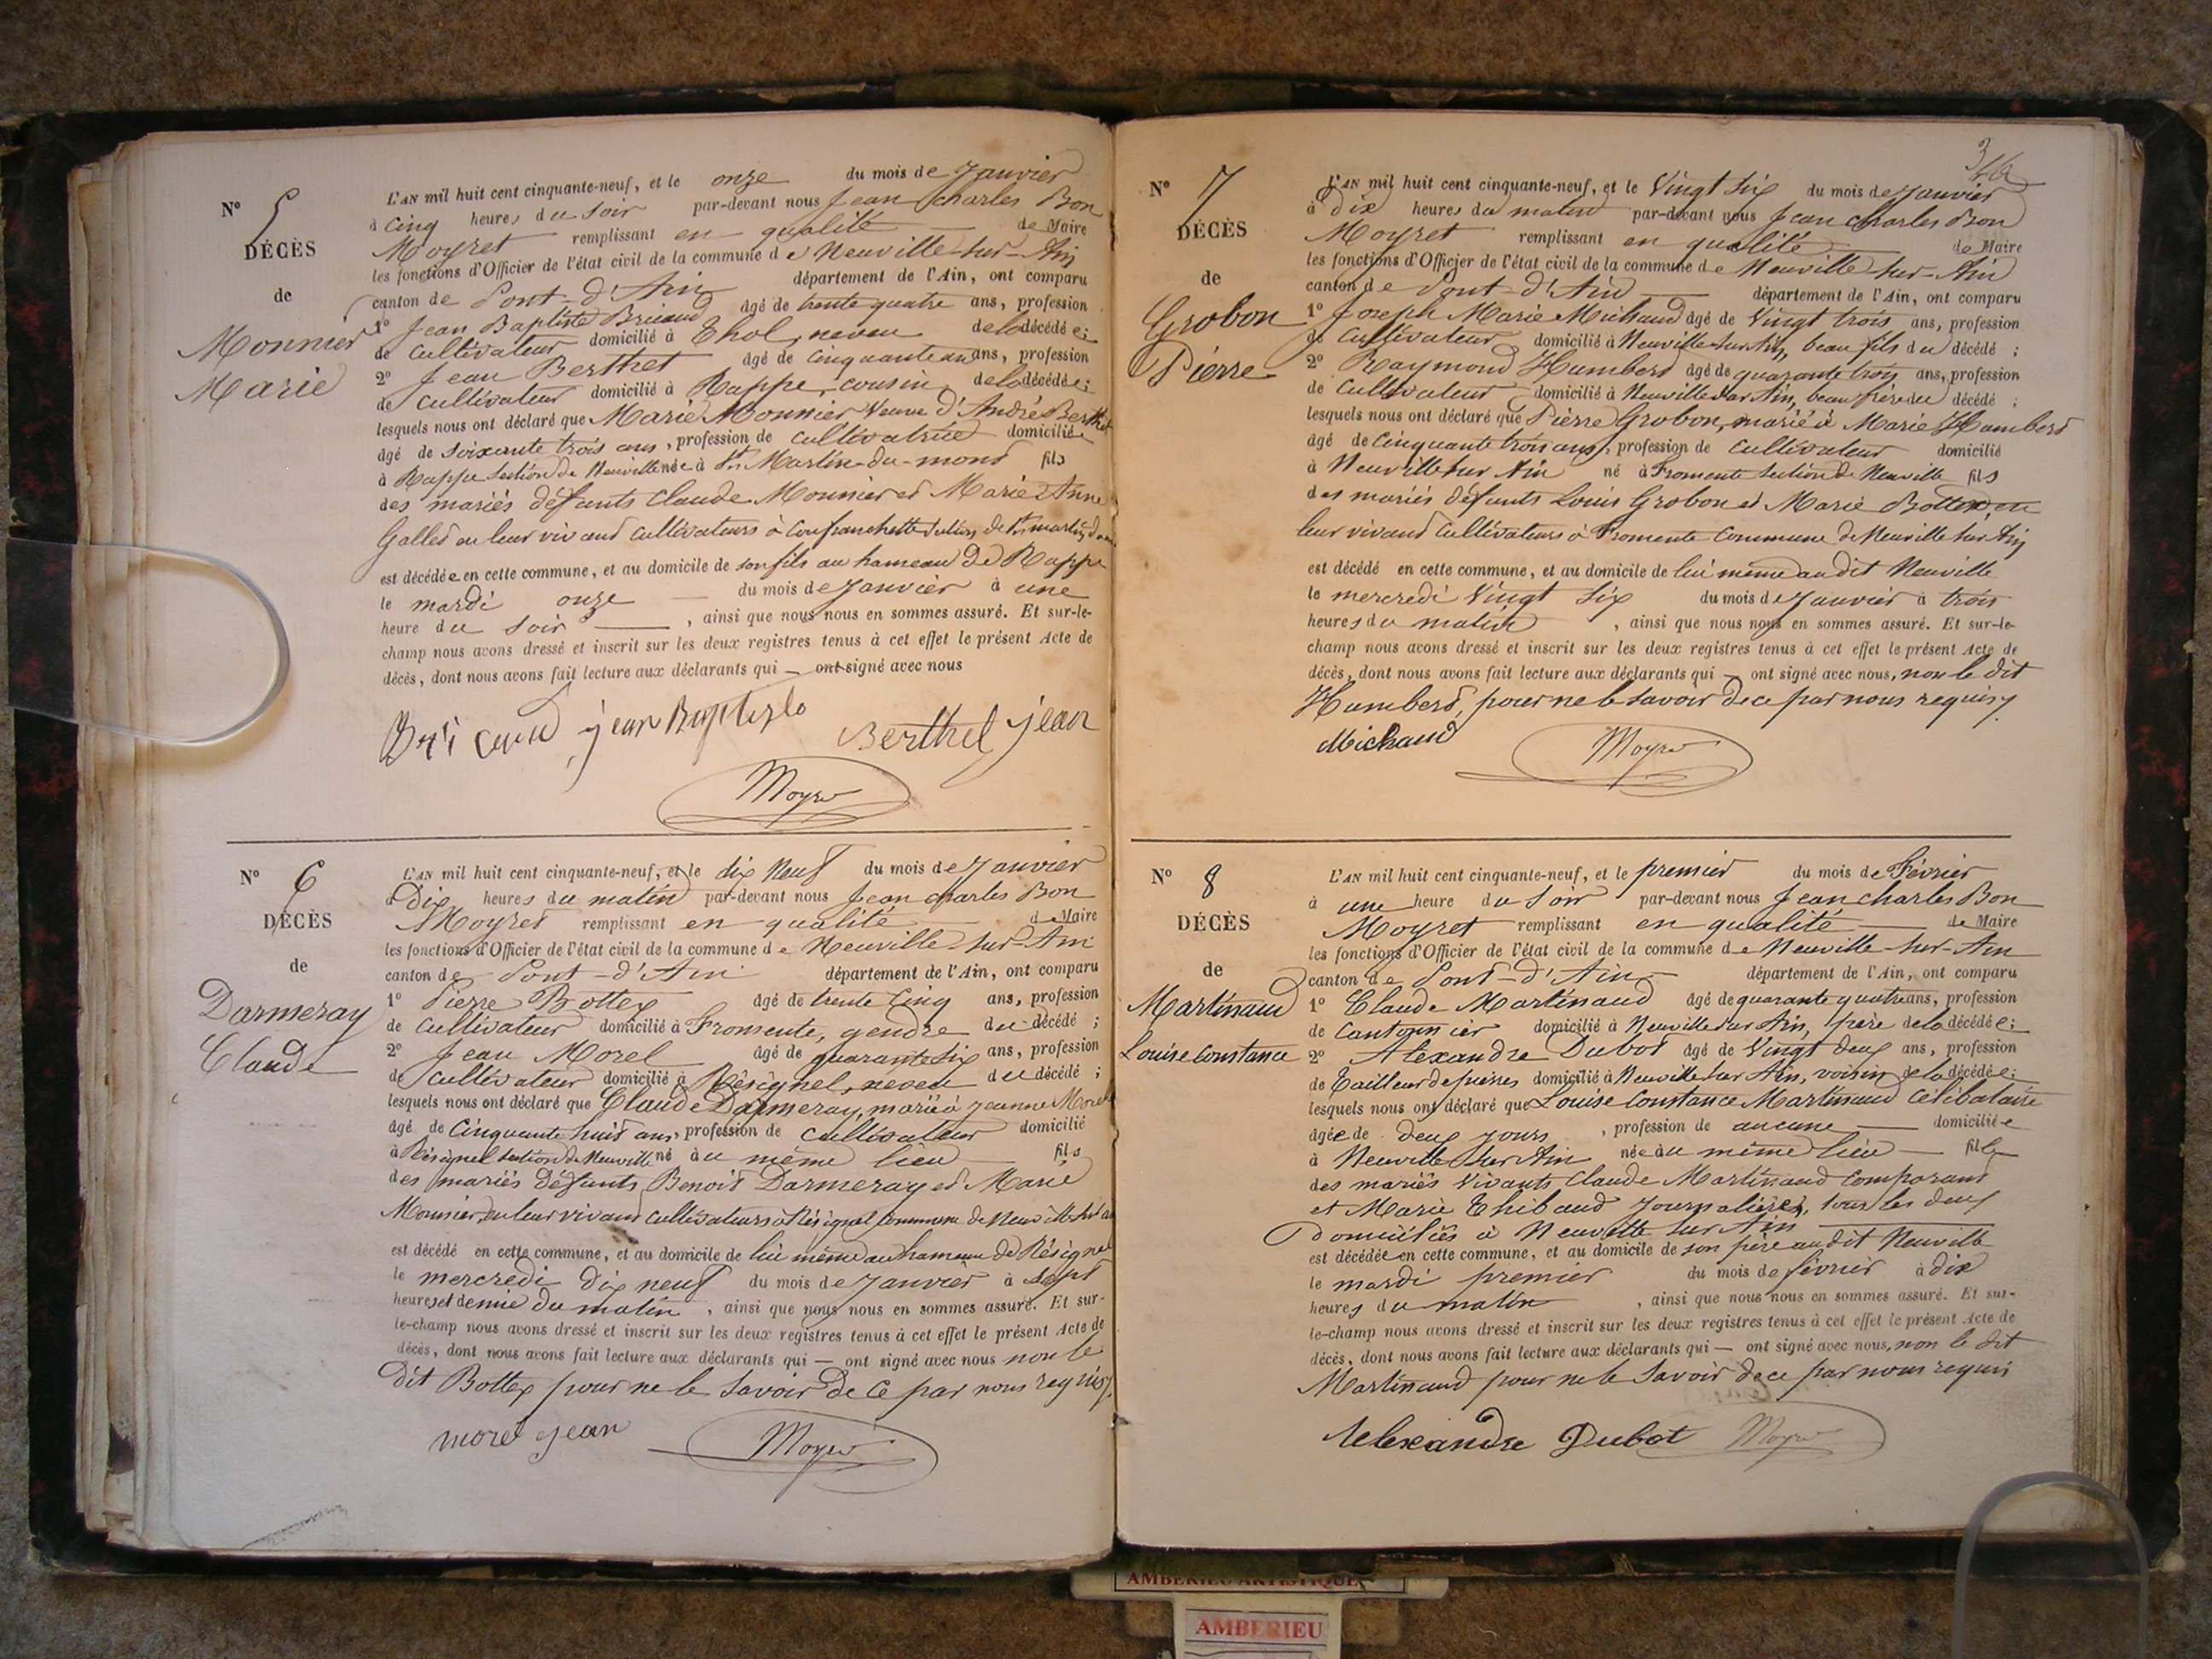 N° 5
DÉCÈS
de
Monnier
Marie
L'AN mil huit cent cinquante-neuf, et le onze du mois de Janvier
à cinq heures du soir par-devant nous Jean Charles Bon
Moyret remplissant en qualité de Maire
les fonctions d'Officier de l'état civil de la commune de Neuville-sur-Ain
canton de Pont-d'Ain département de l'Ain, ont comparu
1° Jean Baptiste Bricaud âgé de trente quatre ans, profession
de cultivateur domicilié à Thol, neveu de la décédée;
2° Jean Berthet âgé de cinquante un ans, profession
de cultivateur domicilié à Rappe, cousin de la décédée;
lesquels nous ont déclaré que Marie Monnier Veuve d'André Berthet
âgé de soixante trois ans, profession de cultivatrice domiciliée
à Rappe section de Neuville née à St Martin-du-mont fils
des mariés défunts Claude Monnier et Marie Anne
Galled en leur vivant cultivateurs à Confranchette section de St martin du
est décédée en cette commune, et au domicile de son fils au hameau de Rappe
le mardi onze du mois de Janvier à une
heure du soir, ainsi que nous nous en sommes assuré. Et sur-le-
champ nous avons dressé et inscrit sur les deux registres tenus à cet effet le présent Acte de
décès, dont nous avons fait lecture aux déclarants qui — ont signé avec nous
Bricaud jean Baptiste Berthet jean
Moyret
N° 6
DÉCÈS
de
Darmeray
Claude
L'AN mil huit cent cinquante-neuf, et le dix Neuf du mois de Janvier
à Dix heures du matin par-devant nous Jean charles Bon
Moyret remplissant en qualité de Maire
les fonctions d'Officier de l'état civil de la commune de Neuville-sur-Ain
canton de Pont-d'Ain département de l'Ain, ont comparu
1° Pierre Bottex âgé de trente cinq ans, profession
de cultivateur domicilié à Fromente, gendre du décédé ;
2° Jean Morel âgé de quarante six ans, profession
de cultivateur domicilié à Résignel, neveu du décédé ;
lesquels nous ont déclaré que Claude Darmeray, marié à Jeanne Morel
âgé de cinquante huit ans, profession de cultivateur domicilié
à Résignel section de Neuville né au même lieu fils
des mariés défunts Benoit Darmeray et Marie
Monnier, en leur vivant cultivateurs à Résignel commune de Neuville sur Ain
est décédé en cette commune, et au domicile de lui même au hameau de Résignel
le mercredi dix neuf du mois de Janvier à sept
heures et demie du matin, ainsi que nous nous en sommes assuré. Et sur-
le-champ nous avons dressé et inscrit sur les deux registres tenus à cet effet le présent Acte de
décès, dont nous avons fait lecture aux déclarants qui — ont signé avec nous non le
dit Bottex pour ne le savoir de ce par nous requis.
morel jean Moyret
346
N° 7
DÉCÈS
de
Grobon
Pierre
L'AN mil huit cent cinquante-neuf, et le Vingt six du mois de Janvier
à dix heures du matin par-devant nous Jean charles Bon
Moyret remplissant en qualité de Maire
les fonctions d'Officier de l'état civil de la commune de Neuville-sur-Ain
canton de Pont-d'Ain département de l'Ain, ont comparu
1° Joseph Marie Michaud âgé de Vingt trois ans, profession
de cultivateur domicilié à Neuville sur Ain, beau fils du décédé ;
2° Raymond Humbert âgé de quarante trois ans, profession
de cultivateur domicilié à Neuville sur Ain, beau frère du décédé ;
lesquels nous ont déclaré que Pierre Grobon, marié à Marie Humbert
âgé de cinquante trois ans, profession de cultivateur domicilié
à Neuville sur Ain né à Fromente section de Neuville fils
des mariés défunts Louis Grobon et Marie Bottex, en
leur vivant cultivateurs à Fromente commune de Neuville sur Ain
est décédé en cette commune, et au domicile de lui même audit Neuville
le mercredi Vingt six du mois de Janvier à trois
heures du matin, ainsi que nous nous en sommes assuré. Et sur-le-
champ nous avons dressé et inscrit sur les deux registres tenus à cet effet le présent Acte de
décès, dont nous avons fait lecture aux déclarants qui — ont signé avec nous, non le dit
Humbert, pour ne le savoir de ce par nous requis.
Michaud Moyret
N° 8
DÉCÈS
de
Martinaud
Louise Constance
L'AN mil huit cent cinquante-neuf, et le premier du mois de Février
à une heure du soir par-devant nous Jean charles Bon
Moyret remplissant en qualité de Maire
les fonctions d'Officier de l'état civil de la commune de Neuville-sur-Ain
canton de Pont-d'Ain département de l'Ain, ont comparu
1° Claude Martinaud âgé de quarante quatre ans, profession
de cantonnier domicilié à Neuville sur Ain, père de la décédée;
2° Alexandre Dubot âgé de Vingt deux ans, profession
de tailleur de pierres domicilié à Neuville sur Ain, voisin de la décédée;
lesquels nous ont déclaré que Louise Constance Martinaud célibataire
âgée de deux jours, profession de aucune domiciliée
à Neuville sur Ain née au même lieu fille
des mariés vivants Claude Martinaud comparant
et Marie Thibaud journalière, tous les deux
domiciliés à Neuville sur Ain
est décédée en cette commune, et au domicile de son père audit Neuville
le mardi premier du mois de février à dix
heures du matin, ainsi que nous nous en sommes assuré. Et sur-
le-champ nous avons dressé et inscrit sur les deux registres tenus à cet effet le présent Acte de
décès, dont nous avons fait lecture aux déclarants qui — ont signé avec nous, non le dit
Martinaud pour ne le savoir de ce par nous requis
Alexandre Dubot Moyret
AMBERIEU ARTISTIQUE
AMBERIEU